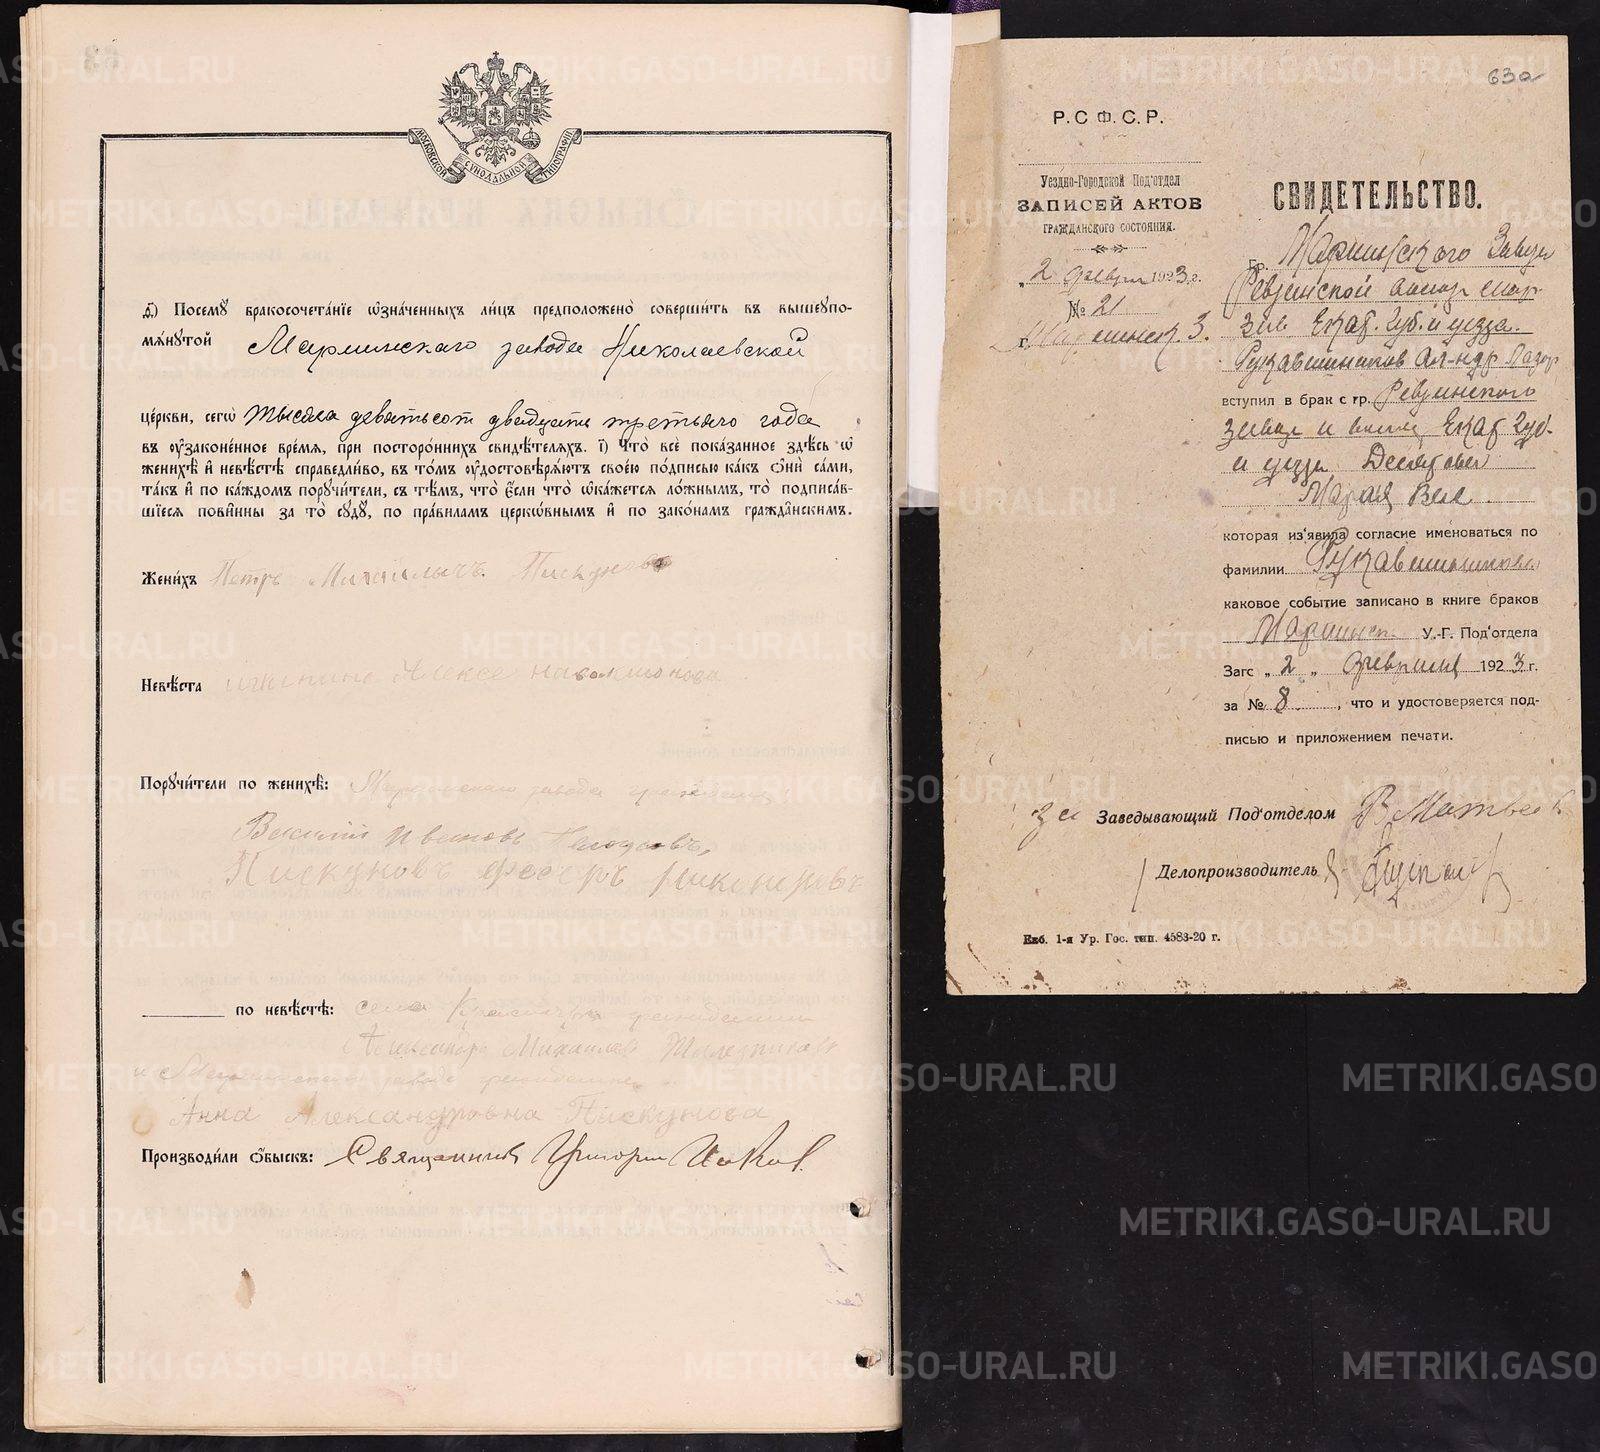 МОСКОВСКОЙ СѴНОДАЛЬНОЙ ТИПОГРАФІИ
д҃) Посемꙋ̀ бракосочета́нїе ѡ҆зна́ченныхъ ли́цъ предположено̀ соверши́ть въ вышеꙋпо-
мѧ́нꙋтой Маріинскаго завода Николаевской
це́ркви, сегѡ̀ тысяча девятьсот двадцать третьяго года
въ ᲂу҆зако́ненное вре́мѧ, при посторо́ннихъ свидѣ́телѧхъ. і҃) Что̀ всѐ пока́занное здѣ́сь ѡ҆
женихѣ̀ и҆ невѣ́стѣ справедли́во, въ то́мъ ᲂу҆достовѣрѧ́ютъ свое́ю по́дписью ка́къ ѻ҆нѝ са́ми,
та́къ и҆ по ка́ждомъ порꙋчи́тели, съ тѣ́мъ, что̀ є҆́сли что̀ ѡ҆ка́жетсѧ ло́жнымъ, то̀ подписа́в-
шїесѧ пови́нны за то̀ сꙋдꙋ̀, по пра́виламъ церкѡ́внымъ и҆ по зако́намъ гражда́нскимъ.
Жени́хъ Петръ Пискуновъ
Невѣ́ста
Порꙋчи́тели по женихѣ̀: Маріинскаго завода гражданин
Василий Ивановъ
Пискуновъ Федеръ
по невѣ́стѣ: села гражданин
Александръ Михаилов
и Маріинскаго завода гражданка
Анна Александровна Пискунова
Производи́ли ѻ҆́быскъ: Священникъ Григорій
63а
Р.С.Ф.С.Р.
Уездно-Городской Под'отдел
ЗАПИСЕЙ АКТОВ
ГРАЖДАНСКОГО СОСТОЯНИЯ.
„2 феврал 1923 г.
№ 21
г. Мариинск. З.
СВИДЕТЕЛЬСТВО.
Гр. Мариинского Завода
Ревдинской волости
Екат. Губ. и уезда.
Рукавишников Ал-ндр Лазар
вступил в брак с гр. Ревдинского
завода и волости Екат Губ.
и уезда Десятовой
Мария Вас
которая из'явила согласие именоваться по
фамилии Рукавишникова
каковое событие записано в книге браков
Мариинск У.-Г. Под'отдела
Загс „ 2 „ Февраля 1923 г.
за № 8 , что и удостоверяется под-
писью и приложением печати.
за Заведывающий Под'отделом
Делопроизводитель
Екб. 1-я Ур. Гос. тип. 4583-20 г.
METRIKI.GASO-URAL.RU